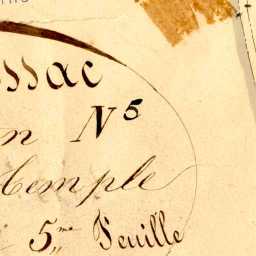 ssac
n N 5
Temple
5me Feuille